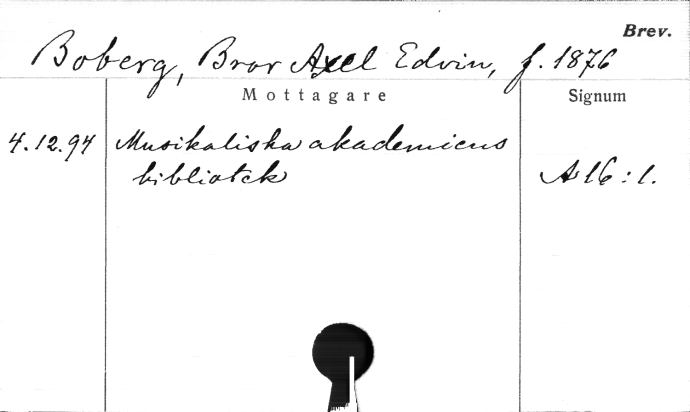 Brev.
Boberg, Bror Axel Edvin, f. 1876
Mottagare Signum
4.12.94 Musikaliska akademiens
bibliotek A16:1.